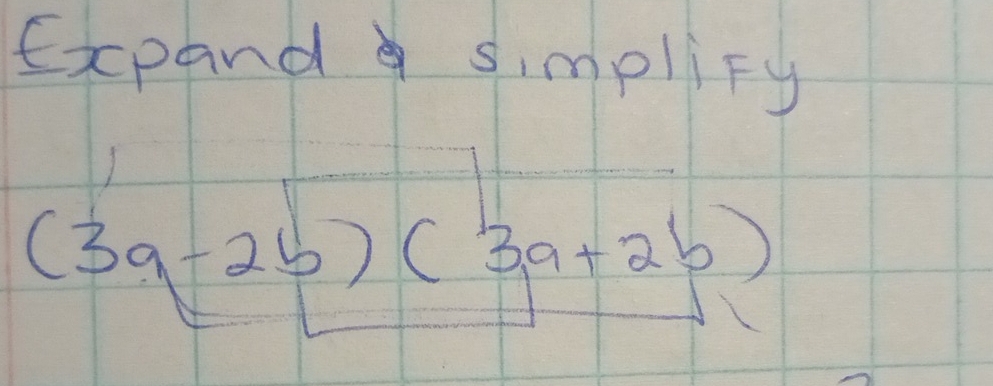 Expand & simplify
(3a-2b)(3a+2b)